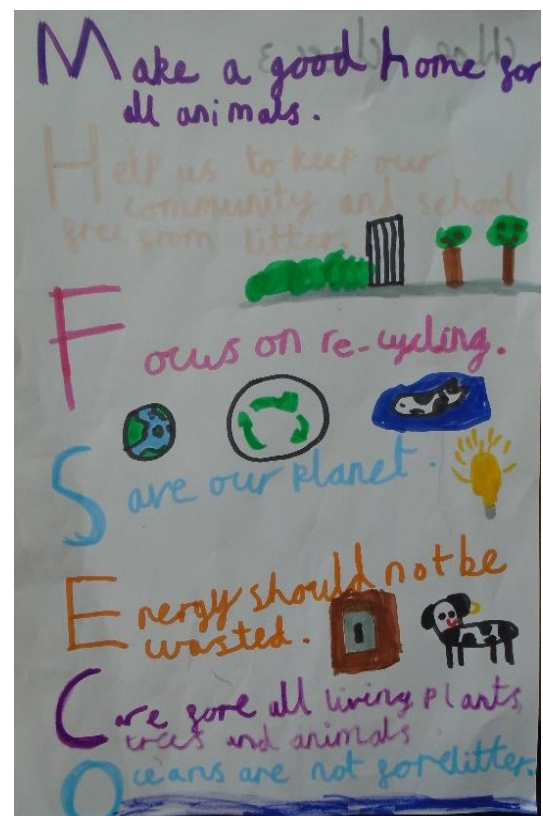 Make a good home for
all animals.
Help us to keep our
community and school
free from litter.
Focus on re-cycling.
Save our planet.
Energy should not be
wasted.
Care fore all living plants,
trees and animals
Oceans are not for litter.